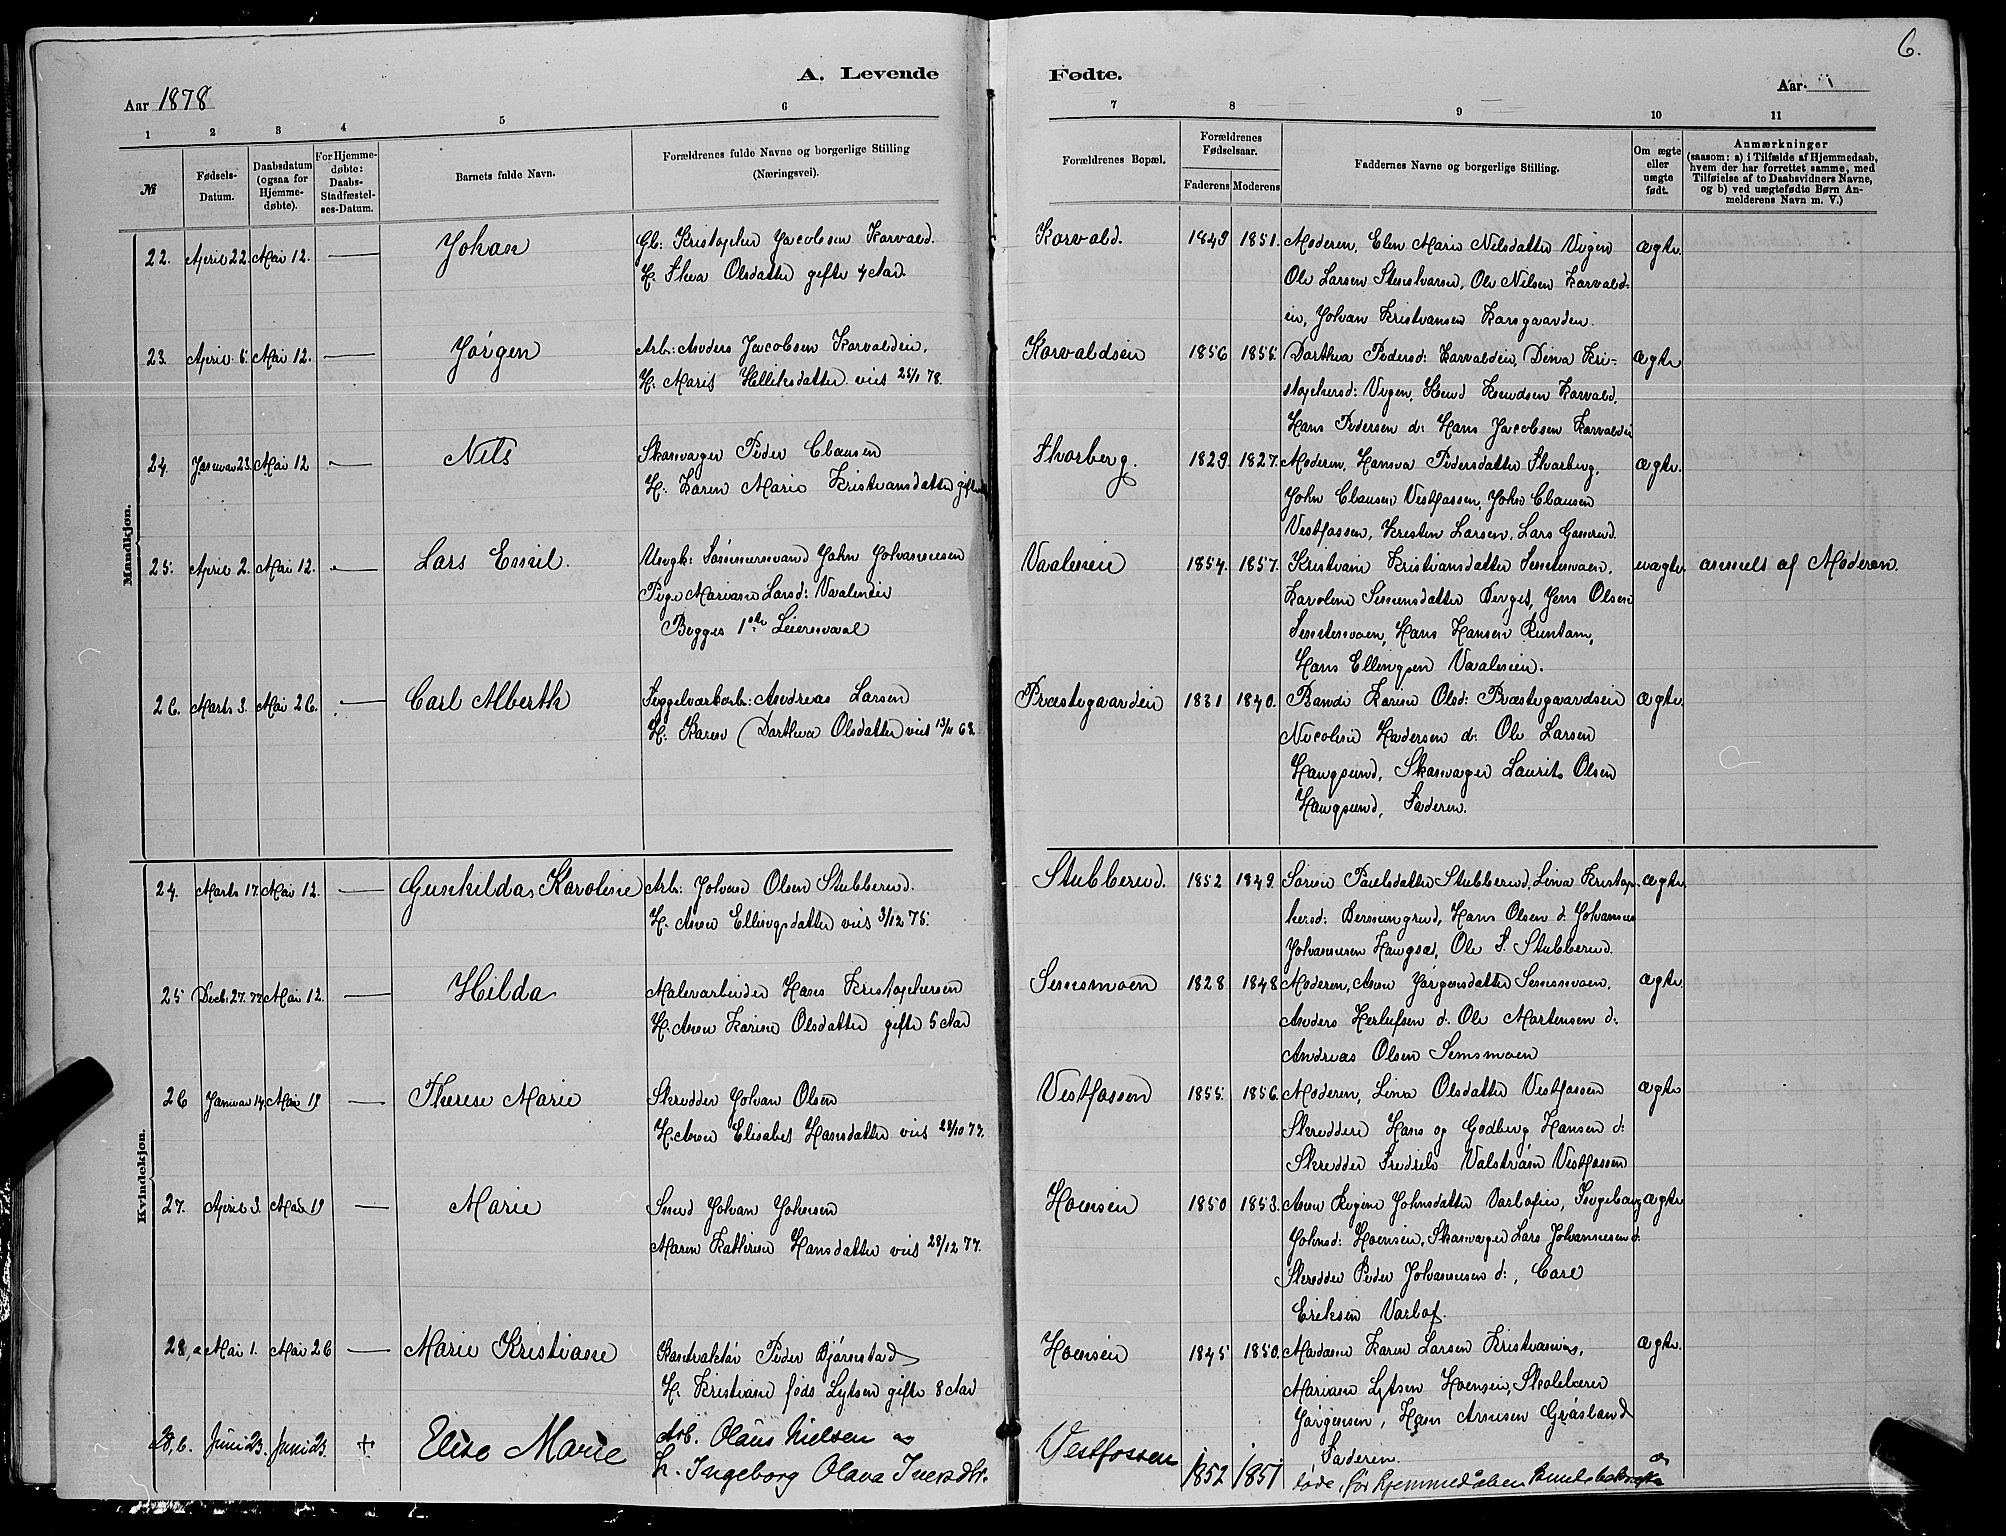 6.
A. Levende
Fødte.
Aar 1878
Aar "
1 2 3 4 5 6
7 8 9 10 11
№
Fødsels-
Datum.
Daabsdatum
(ogsaa for
Hjemme-
døbte).
For Hjemme-
døbte:
Daabs-
Stadfæstel-
ses-Datum.
Barnets fulde Navn.
Forældrenes fulde Navne og borgerlige Stilling
(Næringsvei).
Forældrenes Bopæl.
Forældrenes
Fødselsaar.
Faderens Moderens
Faddernes Navne og borgerlige Stilling.
Om ægte
eller
uægte
født.
Anmærkninger
(saasom: a) i Tilfælde af Hjemmedaab,
hvem der har forrettet samme, med
Tilføielse af to Daabsvidners Navne,
og b) ved uægtefødte Børn An-
melderens Navn m. V.)
Mandkjøn.
22. April 22. Mai 12. — Johan Gb: Kristopher Jacobsen Korvald.
H. Thea Olsdatter gifte 4 Aar.
Korvald. 1849 1851. Moderen, Elen Marie Nilsdatter Vigen ægte.
Ole Larsen Stenshorne, Ole Nilsen Korvald-
ein, Johan Kristiansen Korsgaarden.
23. April 6. Mai 12. — Jørgen Arb: Anders Jacobsen Korvaldeie,
H: Maris Helliksdatter vies 25/1 78.
Korvaldseie 1856 1855. Dorthea Pedersd: Korvaldeie, Dina Kri- ægte
stophersd: Vigen, Knud Knudsen Korvald.
Hans Pedersen d: Hans Jacobsen Korvaldeie
24. Januar 23. Mai 12 — Nils Skomager Peder Clausen
H: Karen Marie Kristiansdatter gifte
Thorberg. 1829. 1827. Moderen, Hansia Pedersdatter Thorberg, ægte.
John Clausen Vestfossen, John Clausen
Vestfossen, Kristen Larsen, Lars Gunerud.
25. April 2. Mai 12. — Lars Emil. Ungk: Tømmermand John Johannesen
Pige Mariane Larsd: Vaaleneie
Begges 1ste Leiermaal
Vaaleneie 1854. 1857. Kristiane Kristiansdatter Semsmoen, uægte anmelt af Moderen.
Karoline Simensdatter Berget, Jens Olsen
Semsmoen, Hans Hansen Runtom,
Hans Ellingsen Vaaleneie.
26. Marts 3. Mai 26. — Carl Alberth Teggelværksarb: Andreas Larsen
H: Karen Dorthea Olsdatter vies 13/11 68.
Præstegaardeie 1831 1840. Bandi Karine Olsd: Præstegaardseie ægte.
Nicoline Hadersen d: Ole Larsen
Haugsund, Skomager Laurits Olsen
Haugsund, Faderen.
Kvindekjøn.
24. Marts 17. Mai 12. — Gunhilda Karoline Arb: Johan Olsen Stubberud.
H. Anne Ellingsdatter vies 3/12 75.
Stubberud. 1852 1849. Sørine Paulsdatter Stubberud, Lina Kristop- ægte.
hersd: Bermingrud, Hans Olsen d: Johannes
Johannesen Haugsæt, Ole T. Stubberud.
25 Decb: 27. 77. Mai 12. — Hilda Malerarbeider Hans Kristophersen
H. Anne Karine Olsdatter gifte 5 Aar
Semsmoen 1828 1848 Moderen, Anne Jørgensdatter Semsmoen. ægte.
Anders Herlufsen d: Ole Mortensen d:
Andreas Olsen Semsmoen
26 Januar 14. Mai 19 — Therese Marie Skredder Johan Olsen
H. Anne Elisabet Hansdatter vies 28/10 77.
Vestfossen 1855. 1856. Moderen, Lina Olsdatter Vestfossen ægte
Skreddere Hans og Godberg Hansen d:
Skredder Fredrik Valstrøm Vestfossen
27. April 3. Mai 19 — Marie Smed Johan Johnsen
Maren Kathrine Hansdatter vies 28/12 77.
Hoenseie 1850 1853. Anne Regine Johnsdatter Varlofeie, Ingeborg ægte
Johnsd: Hoenseie, Skomager Lars Johannesen d:
Skredder Peder Johannesen d:, Carl
Eriksen Varlof.
28, a Mai 1. Mai 26 — Marie Kristiane Kontraktør Peder Bjørnstad
H. Kristiane født Lytsen gifte 8 Aar
Hoenseie 1845 1850. Madame Karen Larsen Kristiania, ægte.
Mariane Lytsen Hoenseie, Skolelærer
Jørgensen, Hans Arnesen Grøsland
Faderen.
28, b. Juni 23. Juni 23. + Elise Marie Arb. Olaus Nielsen og
H. Ingeborg Olava Iversdtr.
Vestfossen 1852 1851 døde, før hjemmedåben kunde bekræftes æ